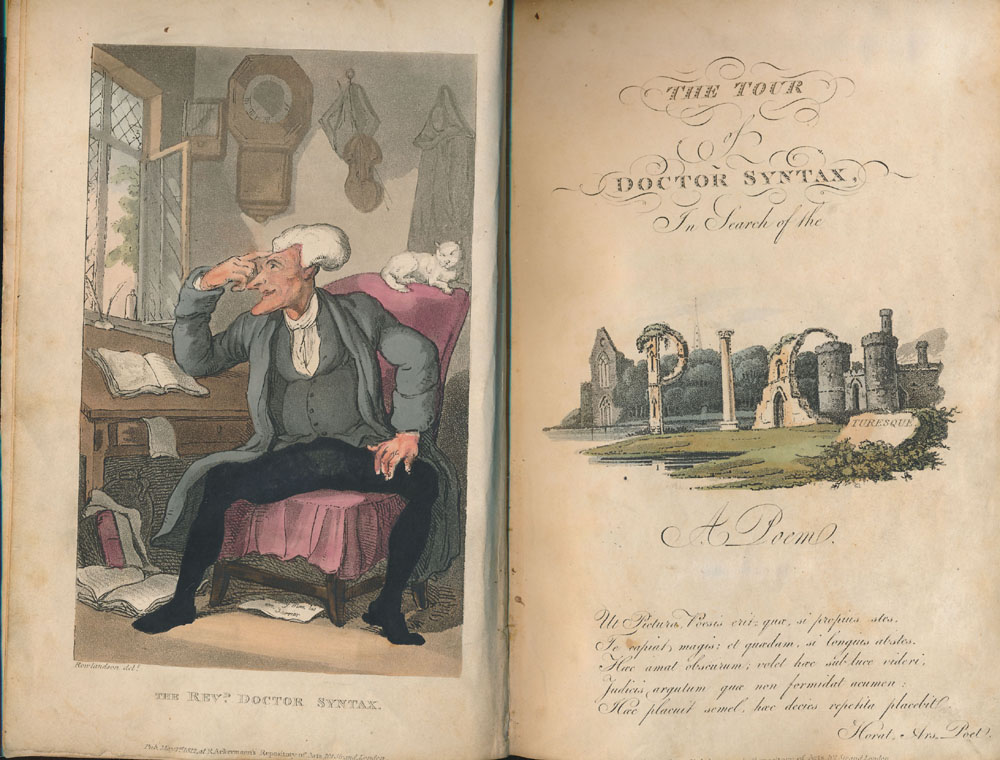 Rowlandson del.t
THE REV.D DOCTOR SYNTAX.
Pub. May 1st 1812, at R. Ackermann's Repository of Arts 101 Strand London
THE TOUR
of
DOCTOR SYNTAX,
In Search of the
PIC
TURESQUE
A Poem.
Ut Pictura, Poesis erit; quæ, si propius stes,
Te capiat magis; et quædam, si longius abstes.
Hæc amat obscurum; volet hæc sub luce videri,
Judicis argutum quæ non formidat acumen:
Hæc placuit semel, hæc decies repetita placebit.
Horat. Ars. Poet.
Repository of Arts 101 Strand London